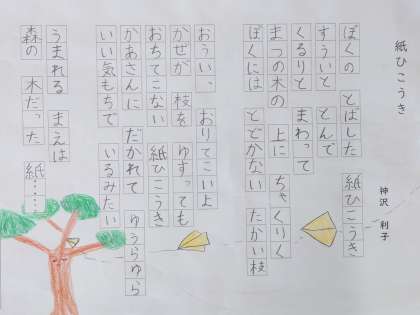 紙ひこうき
神沢 利子
ぼくの とばした 紙ひこうき
すういと とんで
くるりと まわって
まつの木の 上に ちゃくりく
ぼくには とどかない たかい枝
おうい、 おりてこいよ
かぜが 枝を ゆすっても
おちてこない 紙ひこうき
かあさんに だかれて ゆうらゆら
いい気もちで いるみたい
うまれる まえは
森の 木だった 紙……